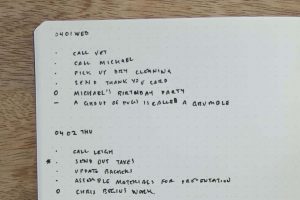 04.01.WED
· CALL VET
· CALL MICHAEL
· PICK UP DRY CLEANING
· SEND THANK YOU CARD
O MICHAEL'S BIRTHDAY PARTY
– A GROUP OF PUGS IS CALLED A GRUMBLE
04.02.THU
· CALL LEIGH
* · SEND OUT TAXES
· UPDATE BACKERS
· ASSEMBLE MATERIALS FOR PRESENTATION
O CHRIS BEGINS WORK